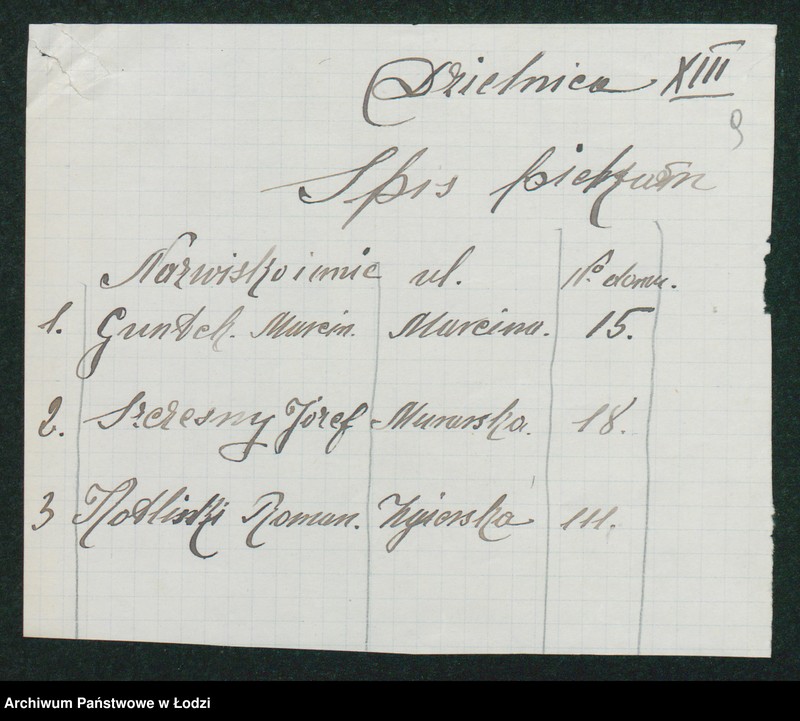 Dzielnica XIII
9
Spis piekarń
Nazwisko i imie ul. No domu.
1. Guntsch. Marcin. Marcina. 15.
2. Szczesny Józef - Murarska. 18.
3 Kotliński Roman. Zgierska 111.
Archiwum Państwowe w Łodzi